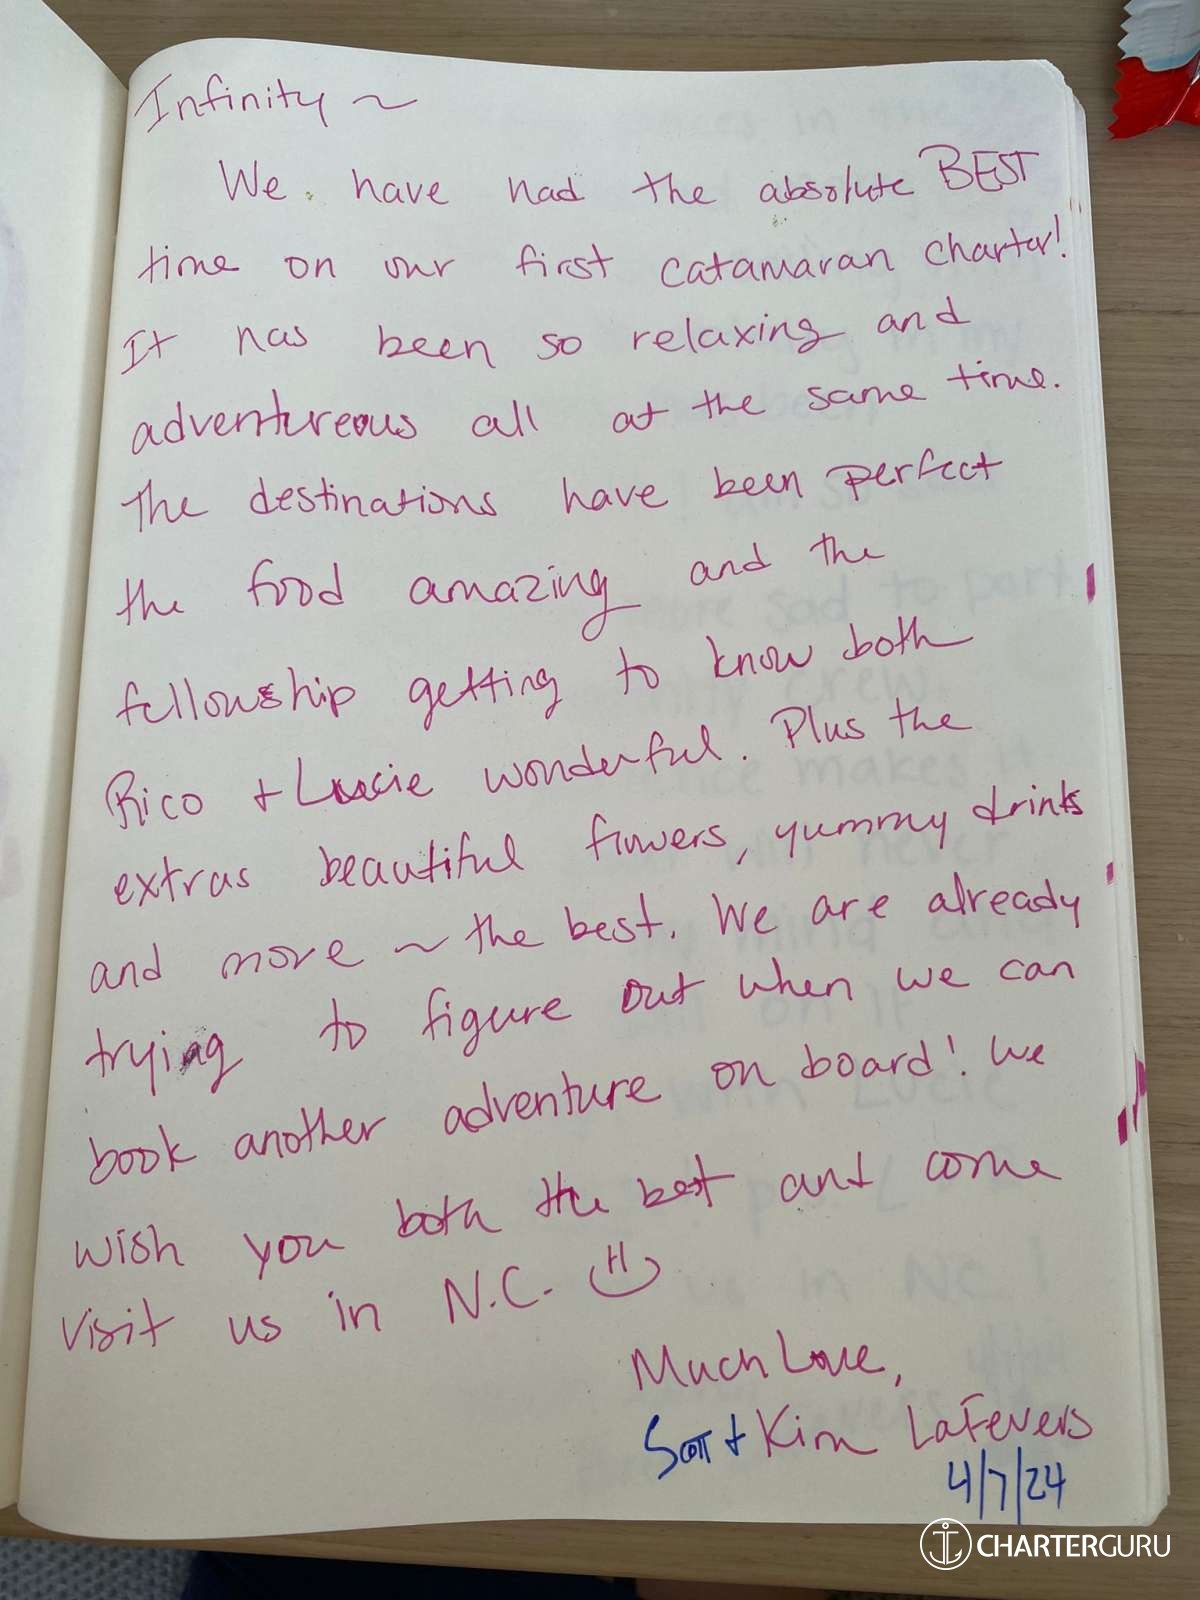 Infinity ~
We have had the absolute BEST
time on our first catamaran charter!
It has been so relaxing and
adventureous all at the same time.
The destinations have been perfect
the food amazing and the
fellowship getting to know both
Rico + Lucie wonderful. Plus the
extras beautiful flowers, yummy drinks
and more ~ the best. We are already
trying to figure out when we can
book another adventure on board! We
wish you both the best and come
visit us in N.C.
Much Love,
Scott + Kim LaFevers
4/7/24
CHARTERGURU